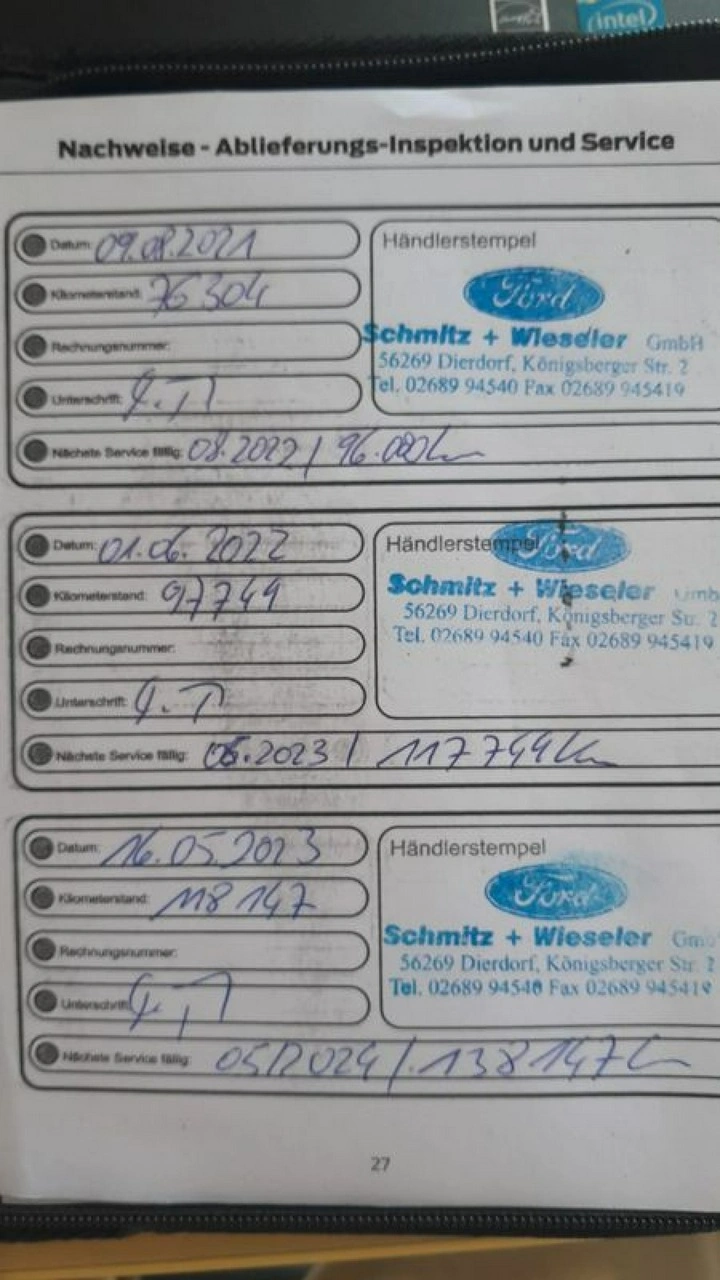 intel
Nachweise - Ablieferungs-Inspektion und Service
Datum: 09.08.2021
Kilometerstand: 76 304
Rechnungsnummer:
Unterschrift:
Nächste Service fällig: 08.2022 / 96.000 km
Händlerstempel
Ford
Schmitz + Wieseler GmbH
56269 Dierdorf, Königsberger Str. 2
Tel. 02689 94540 Fax 02689 945419
Datum: 01.06.2022
Kilometerstand: 97749
Rechnungsnummer:
Unterschrift:
Nächste Service fällig: 06.2023 / 117749 km
Händlerstempel
Ford
Schmitz + Wieseler Gmb
56269 Dierdorf, Königsberger Str. 2
Tel. 02689 94540 Fax 02689 945419
Datum: 16.05.2023
Kilometerstand: 118 147
Rechnungsnummer:
Unterschrift:
Nächste Service fällig: 05/2024 / 138147 km
Händlerstempel
Ford
Schmitz + Wieseler Gmb
56269 Dierdorf, Königsberger Str. 2
Tel. 02689 94540 Fax 02689 945419
27